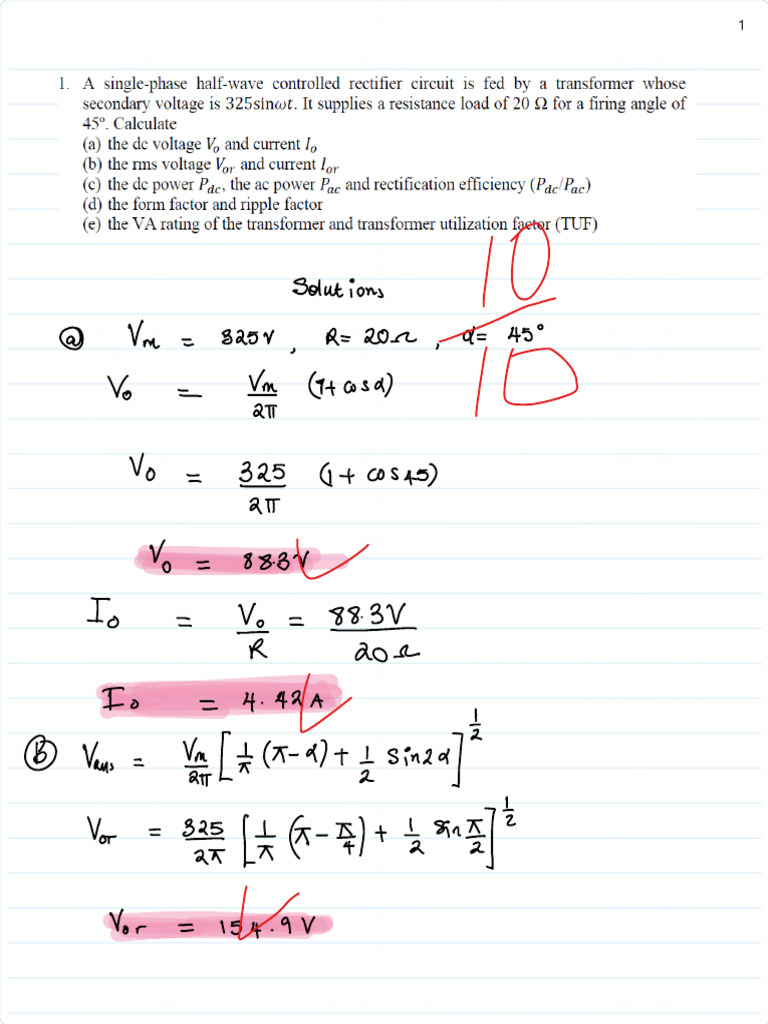 1
1. A single-phase half-wave controlled rectifier circuit is fed by a transformer whose
secondary voltage is 325sinωt. It supplies a resistance load of 20 Ω for a firing angle of
45º. Calculate
(a) the dc voltage Vo and current Io
(b) the rms voltage Vor and current Ior
(c) the dc power Pdc, the ac power Pac and rectification efficiency (Pdc/Pac)
(d) the form factor and ripple factor
(e) the VA rating of the transformer and transformer utilization factor (TUF)
10/10
Solutions
(a) Vm = 325V, R= 20Ω, α= 45°
Vo = Vm/2π (1+cosα)
Vo = 325/2π (1+ cos45)
Vo = 88.3V
Io = Vo/R = 88.3V/20Ω
Io = 4.42A
(B) Vrms = Vm/2π [1/π (π-α) + 1/2 sin2α]^1/2
Vor = 325/2π [1/π (π-π/4) + 1/2 sin π/2]^1/2
Vor = 154.9V